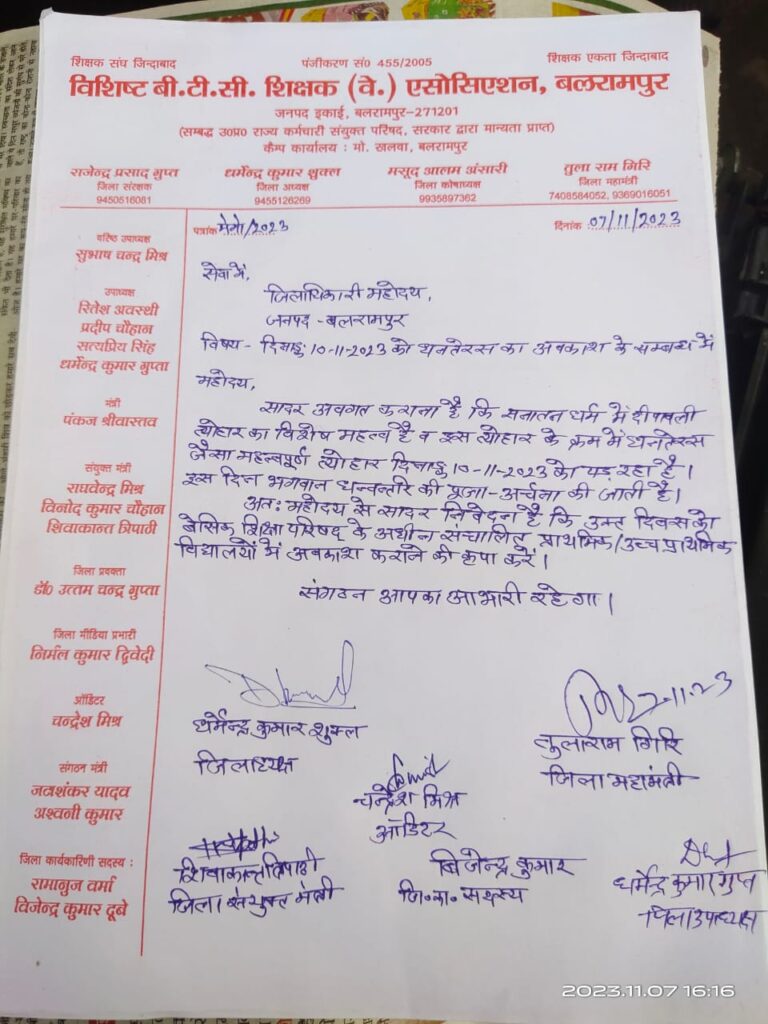 शिक्षक संघ जिन्दाबाद
पंजीकरण सं० 455/2005
शिक्षक एकता जिन्दाबाद
विशिष्ट बी.टी.सी. शिक्षक (वे.) एसोसिएशन, बलरामपुर
जनपद इकाई, बलरामपुर-271201
(सम्बद्ध उ०प्र० राज्य कर्मचारी संयुक्त परिषद, सरकार द्वारा मान्यता प्राप्त)
कैम्प कार्यालय : मो. खलवा, बलरामपुर
राजेन्द्र प्रसाद गुप्त
जिला संरक्षक
9450516081
धर्मेन्द्र कुमार शुक्ल
जिला अध्यक्ष
9455126269
मसूद आलम अंसारी
जिला कोषाध्यक्ष
9935897362
तुला राम गिरि
जिला महामंत्री
7408584052, 9369016051
वरिष्ठ उपाध्यक्ष
सुभाष चन्द्र मिश्र
उपाध्यक्ष
रितेश अवस्थी
प्रदीप चौहान
सत्यप्रिय सिंह
धर्मेन्द्र कुमार गुप्ता
मंत्री
पंकज श्रीवास्तव
संयुक्त मंत्री
राघवेन्द्र मिश्र
विनोद कुमार चौहान
शिवाकान्त त्रिपाठी
जिला प्रवक्ता
डॉ० उत्तम चन्द्र गुप्ता
जिला मीडिया प्रभारी
निर्मल कुमार द्विवेदी
ऑडिटर
चन्द्रेश मिश्र
संगठन मंत्री
जयशंकर यादव
अश्वनी कुमार
जिला कार्यकारिणी सदस्य :
रामानुज वर्मा
विजेन्द्र कुमार दूबे
पत्रांक मेमो/2023
दिनांक 07/11/2023
सेवा में,
जिलाधिकारी महोदय,
जनपद - बलरामपुर
विषय - दिनाङ्क 10-11-2023 को धनतेरस का अवकाश के सम्बन्ध में
महोदय,
सादर अवगत कराना है कि सनातन धर्म में दीपावली
त्योहार का विशेष महत्व है व इस त्योहार के क्रम में धनतेरस
जैसा महत्वपूर्ण त्योहार दिनाङ्क 10-11-2023 को पड़ रहा है।
इस दिन भगवान धन्वन्तरि की पूजा-अर्चना की जाती है।
अतः महोदय से सादर निवेदन है कि उक्त दिवस को
बेसिक शिक्षा परिषद के अधीन संचालित प्राथमिक/उच्च प्राथमिक
विद्यालयों में अवकाश कराने की कृपा करें।
संगठन आपका आभारी रहेगा।
धर्मेन्द्र कुमार शुक्ल
जिलाध्यक्ष
7-11-23
तुलाराम गिरि
जिला महामंत्री
चन्द्रेश मिश्र
ऑडिटर
शिवाकान्त त्रिपाठी
जिला संयुक्त मंत्री
बिजेन्द्र कुमार
जि.का. सदस्य
धर्मेन्द्र कुमार गुप्त
जिला उपाध्यक्ष
2023.11.07 16:16